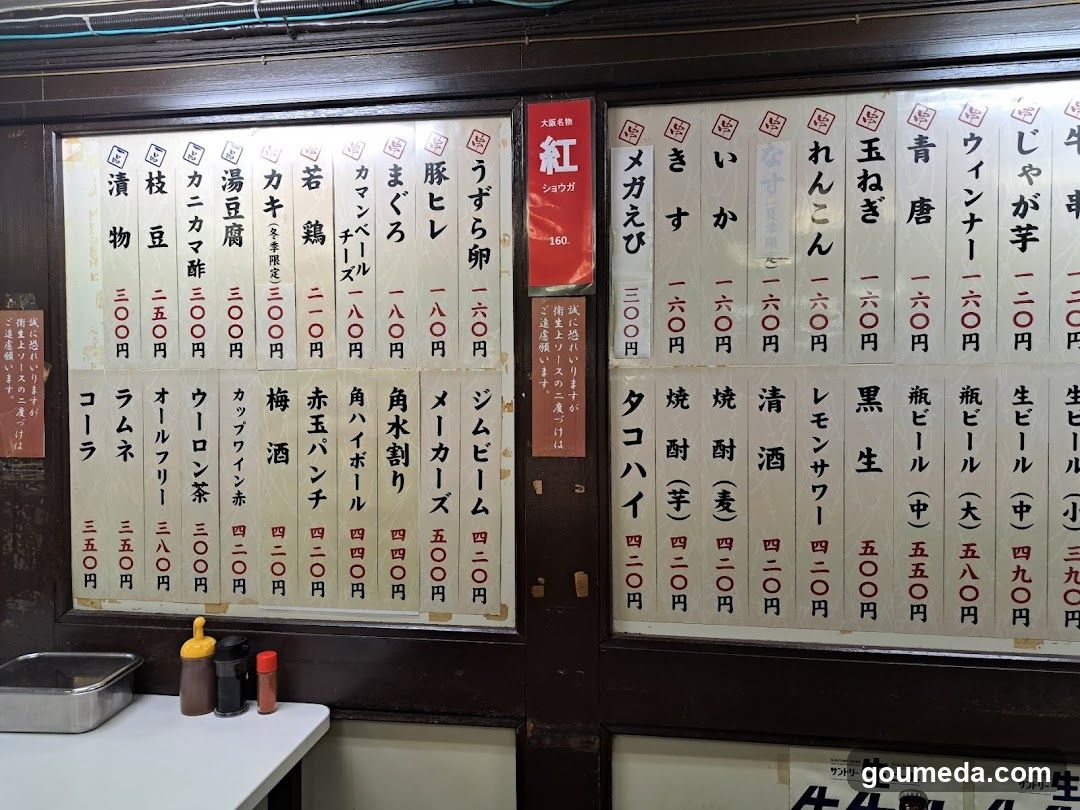 串 じゃが芋 一二〇円
串 ウィンナー 一六〇円
串 青唐 一六〇円
串 玉ねぎ 一六〇円
串 れんこん 一六〇円
串 なす（夏季限定） 一六〇円
串 いか 一六〇円
串 きす 一六〇円
串 メガえび 三〇〇円
生ビール（小） 三九〇円
生ビール（中） 四九〇円
瓶ビール（大） 五八〇円
瓶ビール（中） 五五〇円
黒生 五〇〇円
レモンサワー 四二〇円
清酒 四二〇円
焼酎（麦） 四二〇円
焼酎（芋） 四二〇円
タコハイ 四二〇円
大阪名物
紅
ショウガ
160.
誠に恐れいりますが
衛生上ソースの二度づけは
ご遠慮願います。
串 うずら卵 一六〇円
串 豚ヒレ 一八〇円
串 まぐろ 一八〇円
串 カマンベール
チーズ 一八〇円
串 若鶏 二一〇円
串 カキ（冬季限定） 三〇〇円
一品 湯豆腐 三〇〇円
一品 カニカマ酢 三〇〇円
一品 枝豆 二五〇円
一品 漬物 三〇〇円
ジムビーム 四二〇円
メーカーズ 五〇〇円
角水割り 四四〇円
角ハイボール 四四〇円
赤玉パンチ 四二〇円
梅酒 四二〇円
カップワイン赤 四二〇円
ウーロン茶 三〇〇円
オールフリー 三八〇円
ラムネ 三五〇円
コーラ 三五〇円
誠に恐れいりますが
衛生上ソースの二度づけは
ご遠慮願います。
サントリー 生
goumeda.com